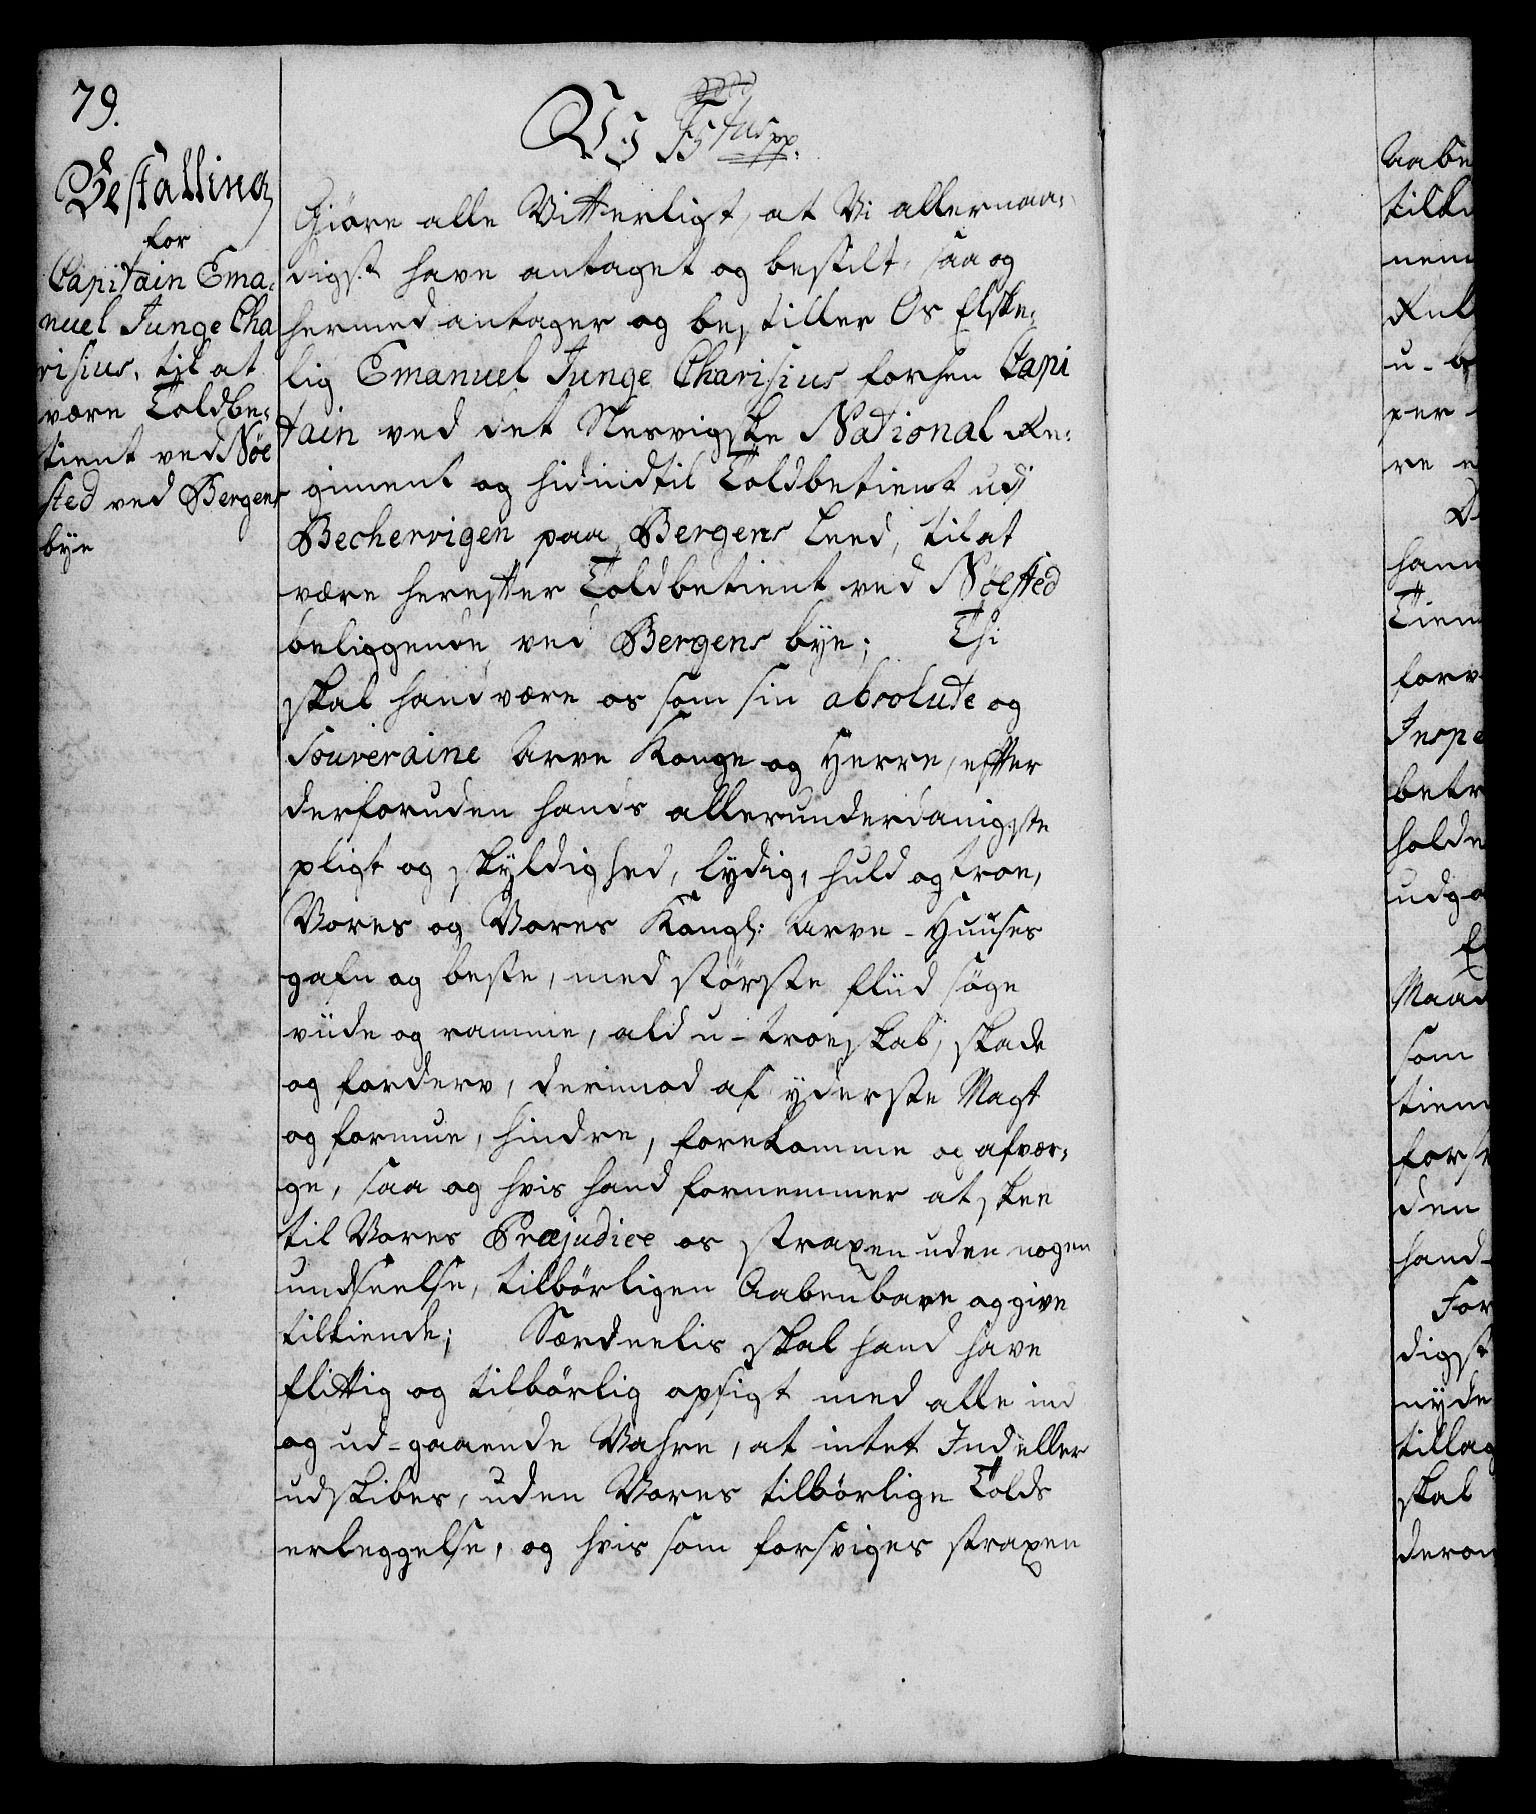 79.
Bestalling
for
Capitain Ema-
nuel Junge Cha
risius, til at
være Toldbe-
tient ved Nøe
sted ved Bergens
bye
Vi
Giøre alle Vitterligt, at Vi allernaa-
digst have antaget og bestilt, saa og
hermed antager og bestiller Os Elske-
lig Emanuel Junge Charisius forhen Capi
tain ved det Slesvigske National Re-
giment og hidindtil Toldbetient udj
Bechervigen paa Bergens Leed, til at
være herefter Toldbetient ved Nöested
beliggende ved Bergens bye; Thi
skal hand være os som sin absolute og
Souveraine Arve Konge og Herre, efter
derforuden hands allerunderdanigste
pligt og skyldighed, lydig, huld og troe,
Vores og Vores Kongl: Arve-Huuses
gafn og beste, med störste fliid söge
viide og ramme, ald u-troeskab, skade
og forderv, derimod af yderste Magt
og formue, hindre, forekomme og afvær-
ge, saa og hvis hand fornemmer at skee
til Vores Præjudice os straxen uden nogen
undseelse, tilbörligen Aabenbare og give
tilkiende; Særdeelis skal hand have
flittig og tilbörlig opsigt med alle ind
og ud-gaaende Vahre, at intet Ind eller
udskibes, uden Vores tilbörlige Tolds
erleggelse, og hvis som forsviges straxen
Aabe
tilki
nem
Rul
u-b
per
re e
hann
Tien
forv
Inspe
betr
holde
udga
Maad
som
tien
forse
den
hand
For
digst
nyde
tillag
skal
derom